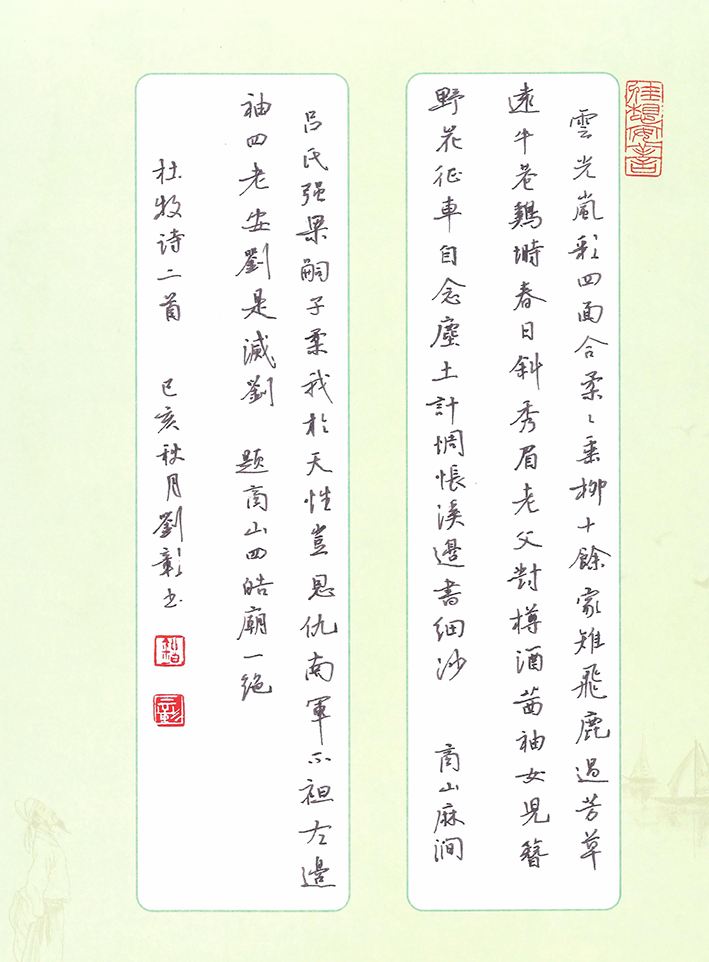 雲光嵐彩四面合柔〻垂柳十餘家雉飛鹿過芳草
遠牛巷鷄塒春日斜秀眉老父對樽酒茜袖女児簪
野花征車自念塵土計惆悵溪邊書細沙 商山麻澗
吕氏强梁嗣子柔我於天性豈恩仇南軍不袒左邊
袖四老安劉是滅劉 题商山四皓廟一绝
杜牧诗二首 已亥秋月劉彰书